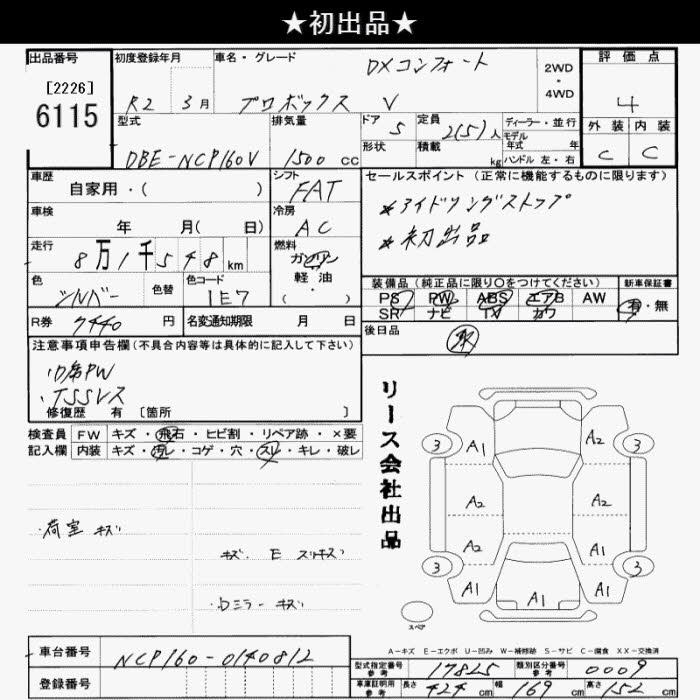 ★初出品★
出品番号
[2226]
6115
初度登録年月
R2 3月
車名・グレード
DXコンフォート
プロボックス V
2WD
・
4WD
評価点
4
外装 内装
C C
型式
DBE-NCP160V
排気量
1500 cc
ドア 5
形状
定員 2(5)人
積載 kg
ディーラー・並行
モデル
年式 年
ハンドル 左・右
車歴
自家用・( )
シフト
FAT
車検
年 月( 日)
冷房
AC
走行
8万1千548km
燃料
ガソリン
軽油・
( )
色
シルバー
色替
色コード
1E7
R券 7440 円
名変通知期限 月 日
セールスポイント(正常に機能するものに限ります)
*アイドリングストップ
*初出品
装備品(純正品に限り○をつけてください)
PS PW ABS エアB AW
SR ナビ TV カワ
新車保証書
有・無
後日品
取
注意事項申告欄(不具合内容等は具体的に記入して下さい)
TSSレス
修復歴 有 [箇所 ]
検査員
記入欄
FW キズ・飛石・ヒビ割・リペア跡・×要
内装 キズ・汚レ・コゲ・穴・スレ・キレ・破レ
・荷室 キズ
キズ E スリキズ
・Dミラー キズ
リース会社出品
3 A1 A2 3
A2 A2
A2 A1
3 A1 A1 A1 3
スペア
A-キズ E-エクボ U-凹み W-補修跡 S-サビ C-腐食 XX-交換済
車台番号 NCP160-0140812
登録番号
型式指定番号
参考
17825
類別区分番号
参考
0009
車庫証明用
参考
長さ 424 cm 幅 169 cm 高さ 152 cm